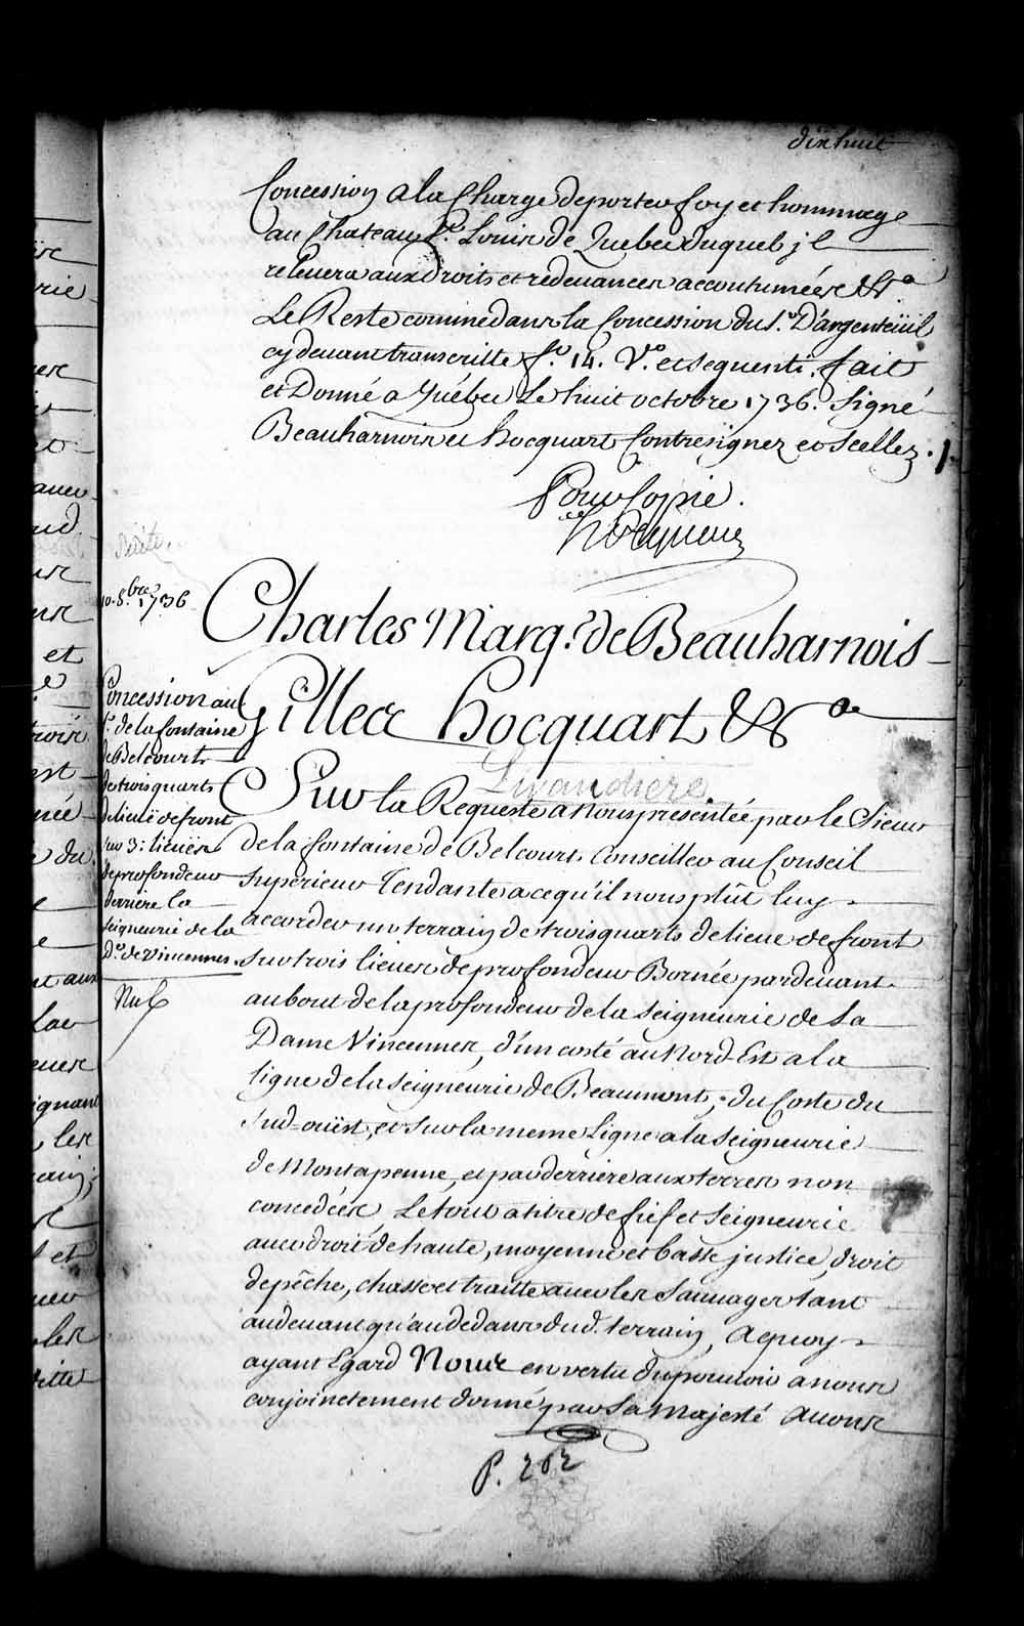 dix huit
Concession a la Charge de porter foy et hommage
au Chateau St. Louis de Quebec duquel jl
relevera aux droits et redevances accoutumées &ca
Le Reste comme dans la Concession du Sr. D'argenteüil
cy devant transcritte fo. 14. Vo. et sequenti. fait
et Donné a Québec Le huit octobre 1736. Signé
Beauharnois et hocquart Contresignez et Scellez ./.
Pour Copie.
Hocquart
10. 8bre 1736
Charles Marq. de Beauharnois
Gilles hocquart &ca
Livaudière
Concession au
Sr. de la fontaine
de Belcourt
de trois quarts
de lieuë de front
sur 3: lieües
de profondeur
derrière la
seigneurie de la
De. de Vincennes.
Nul
Sur la Requeste a Nous presentée par le Sieur
de la fontaine de Belcourt Conseiller au Conseil
Superieur Tendante a ce qu'il nous plût luy
accorder un terrain de trois quarts de lieue de front
sur trois lieues de profondeur Bornée par devant
au bout de la profondeur de la seigneurie de la
Dame Vincennes, d'un costé au Nord-Est a la
ligne de la seigneurie de Beaumont, du Coste du
Sud-oüest, et sur la meme Ligne a la seigneurie
de Montapenne, et par derriere aux terres non
concedées Le tout a titre de fief et Seigneurie
avec droit de haute, moyenne et basse justice, droit
de pêche, chasse et traitte avec les Sauvages tant
au devant qu'au dedans dud. terrain, A quoy
ayant Egard Nous en vertu du pouvoir a nous
conjoinctement donné par Sa Majesté Avons
P. 262